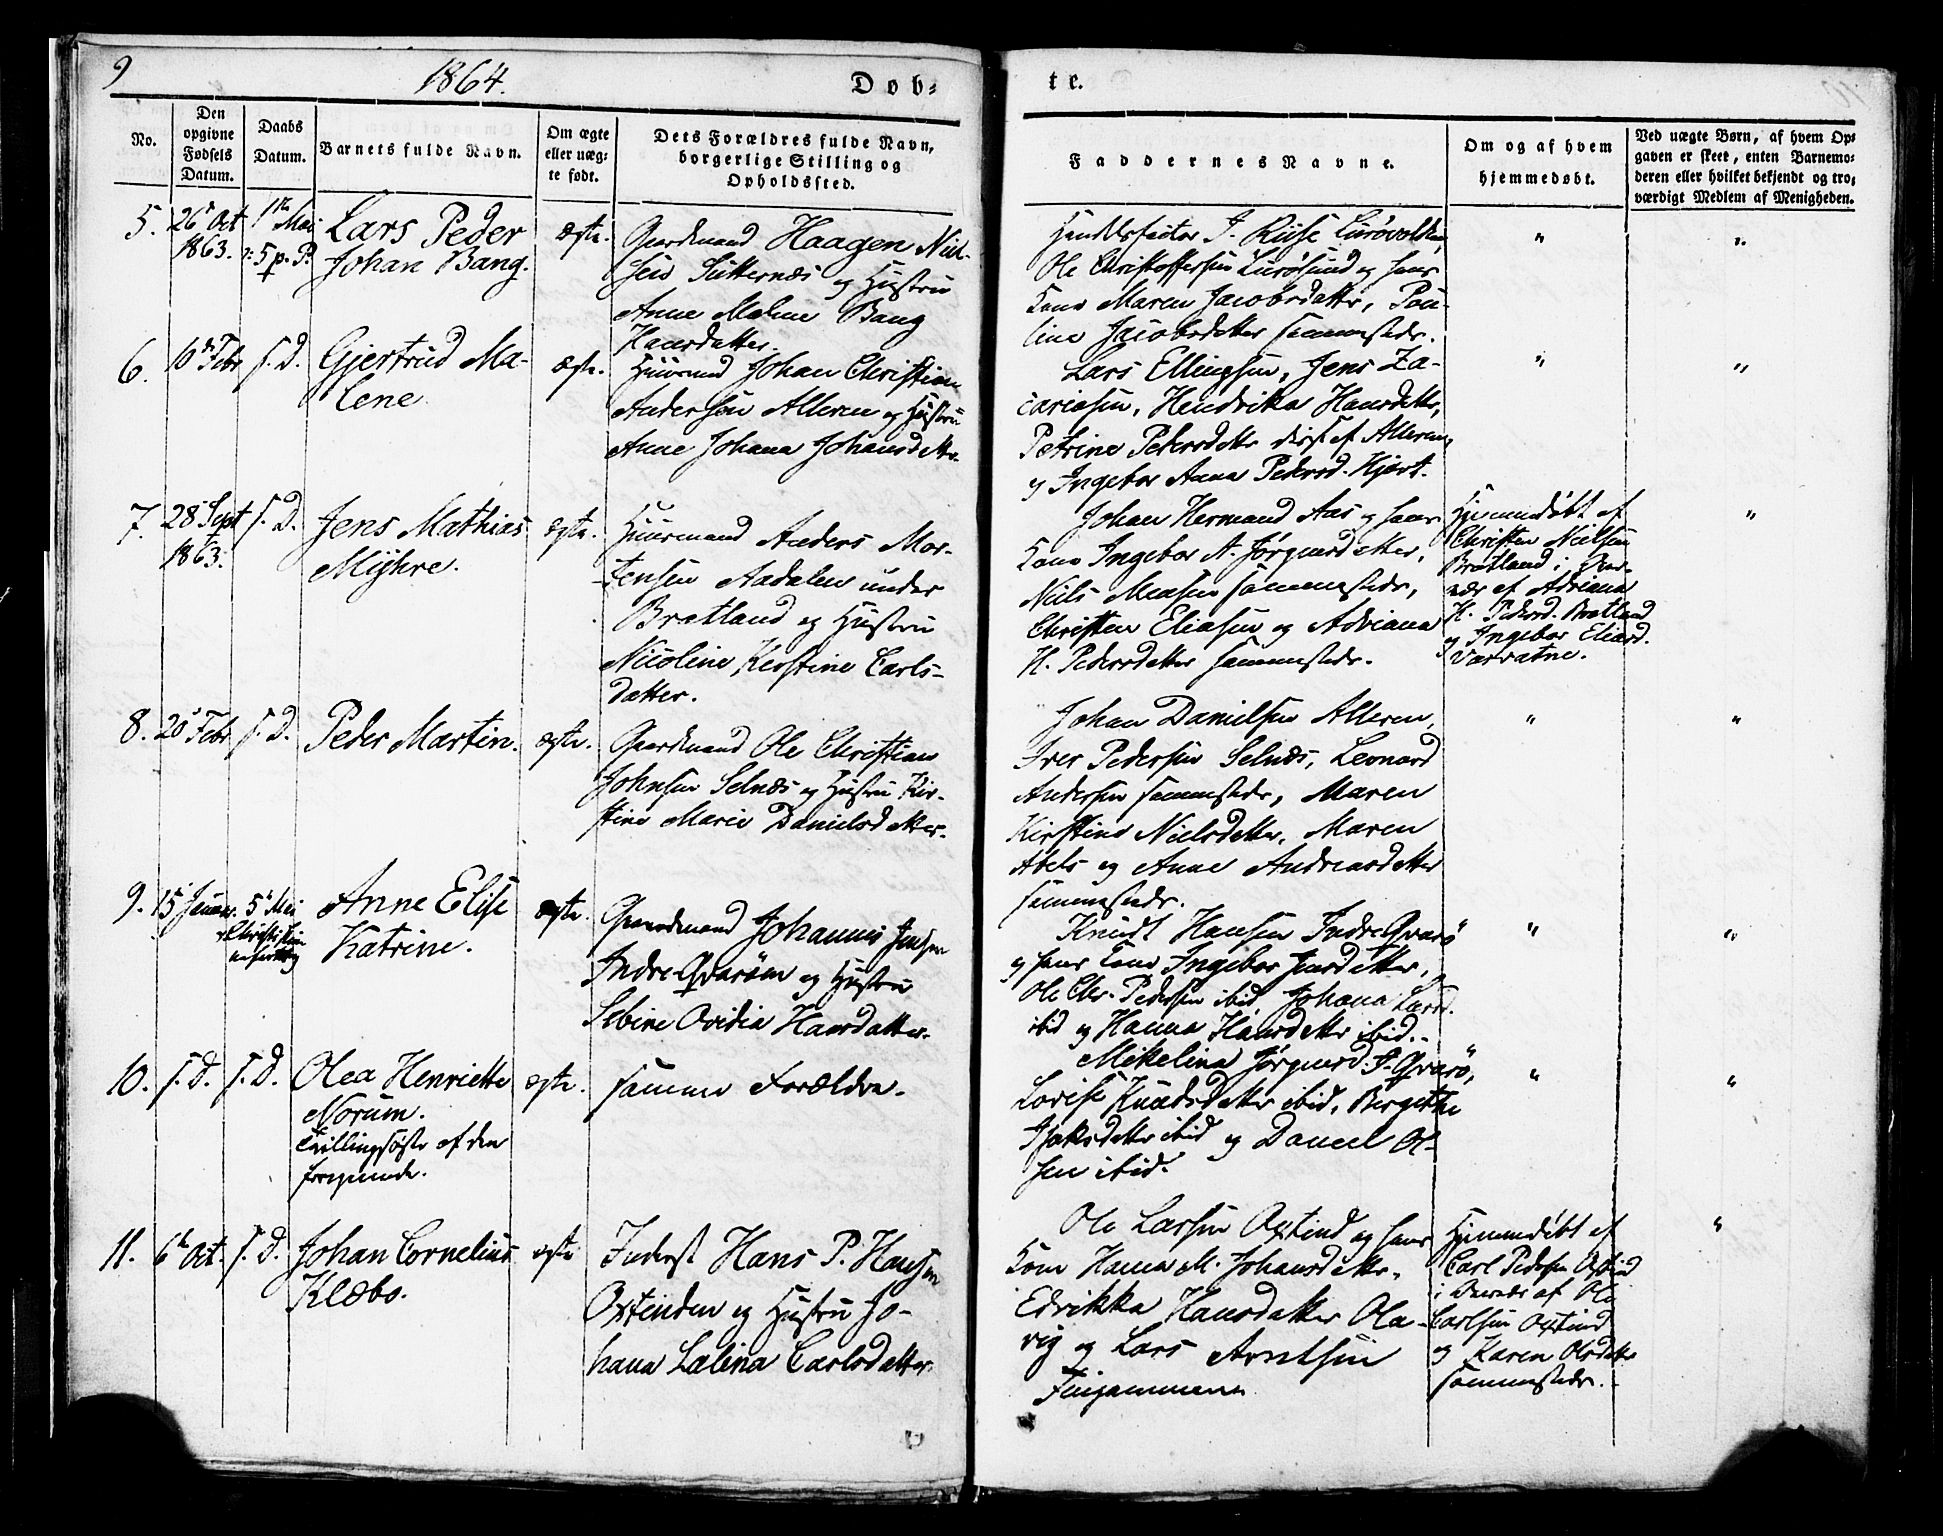 9
1864.
Døb-
te.
No.
Den
opgivne
Fødsels
Datum.
Daabs
Datum.
Barnets fulde Navn.
Om ægte
eller uæg-
te født.
Dets Forældres fulde Navn,
borgerlige Stilling og
Opholdssted.
Faddernes Navne.
Om og af hvem
hjemmedøbt.
Ved uægte Børn, af hvem Op-
gaven er skeet, enten Barnemo-
deren eller hvilket bekjendt og tro-
værdigt Medlem af Menigheden.
5.
26 Oct
1863.
1ste Mai
5 p. P.
Lars Peder
Johan Bang.
ægte.
Gaardmand Haagen Niel-
sen og Hustru
Anne Malene Bang
Hansdatter.
Handelsfactor J. Riise
Ole Christoffersen Lurøsund og hans
Kone Maren Jacobsdatter, Pou-
line Jacobsdatter sammesteds.
"
"
6.
10de Febr
s. D.
Gjertrud Ma-
lene
ægte.
Huusmand Johan Christian
Andersen Alleren og Hustru
Anne Johana Johansdatter.
Lars Ellingsen, Jens Za-
cariasen, Hendrikka Hansdatter,
Petrine Pedersdatter Alleren,
og Ingebor Anna Pedersd. Hjort.
"
"
7.
28 Sept
1863.
s. D.
Jens Mathias
Myhre.
ægte.
Huusmand Anders Mor-
tensen Aadalen under
Bratland og Hustru
Nicoline Kerstine Carls-
datter.
Johan Hermand Aas og hans
Kone Ingebor A. Jørgensdatter,
Niels sammesteds,
Christen Eliasen og Adriana
H. Pedersdatter sammesteds.
Hjemmedøbt af
Christen Nielsen
Bratland i Over-
vær af Adriana
H. Pedersd. Bratland
og Ingebor Eliasd.
Værvatne.
"
8.
20 Febr
s. D.
Peder Martin.
ægte.
Gaardmand Ole Christian
Johnsen Selnæs og Hustru Kir-
stine Marie Danielsdatter.
Johan Danielsen Alleren,
Iver Pedersen Selnæs, Leonard
Andersen sammesteds, Maren
Kirstine Nielsdatter, Maren
Abels og Anne Andreasdatter
sammesteds.
"
"
9.
15 Januar.
5 Mai
Christi Him
melfartsdag
Anne Elise
Katrine.
ægte.
Gaardmand Johannes Jensen
Indre Qvarøen og Hustru
Sebine Ovidia Hansdatter.
Knudt Hansen Indre Qvarø
og hans Kone Ingebor Jensdatter,
Ole Chr. Pedersen ibid, Johana Larsd.
ibid og Hanna Hansdatter ibid.
"
"
10.
s. D.
s. D.
Olea Henriette
Norum.
Tvillingsøster af den
foregaaende.
ægte.
samme Forældre.
Mikelina Jørgensd. I. Qvarø,
Lovise Knudsdatter ibid, Birgitte
Isaksdatter ibid og Daniel Ol-
sen ibid.
"
"
11.
6te Oct.
s. D.
Johan Cornelius
Klæbo.
ægte
Inderst Hans P. Hansen
Oxtinden og Hustru Jo-
hana Lalina Carlsdatter.
Ole Larsen Oxtind og hans
Kone Hanna M. Johansdatter,
Edvikka Hansdatter Ola-
vig og Lars Arntsen
Fingammene
Hjemmedøbt af
Carl Pedersen Oxtind
i Overvær af Ole
Carlsen Oxtind
og Karen Olsdatter
sammesteds.
"